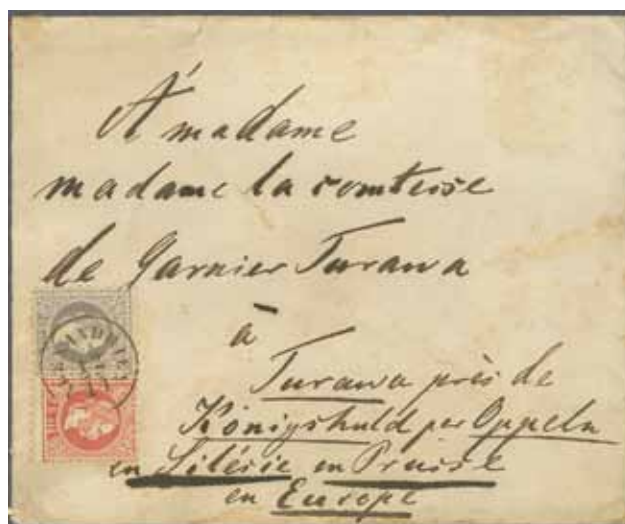 À madame
madame la comtesse
de Garnier Turawa
à
Turawa près de
Königshuld per Oppeln
en Silésie en Prusse
en Europe